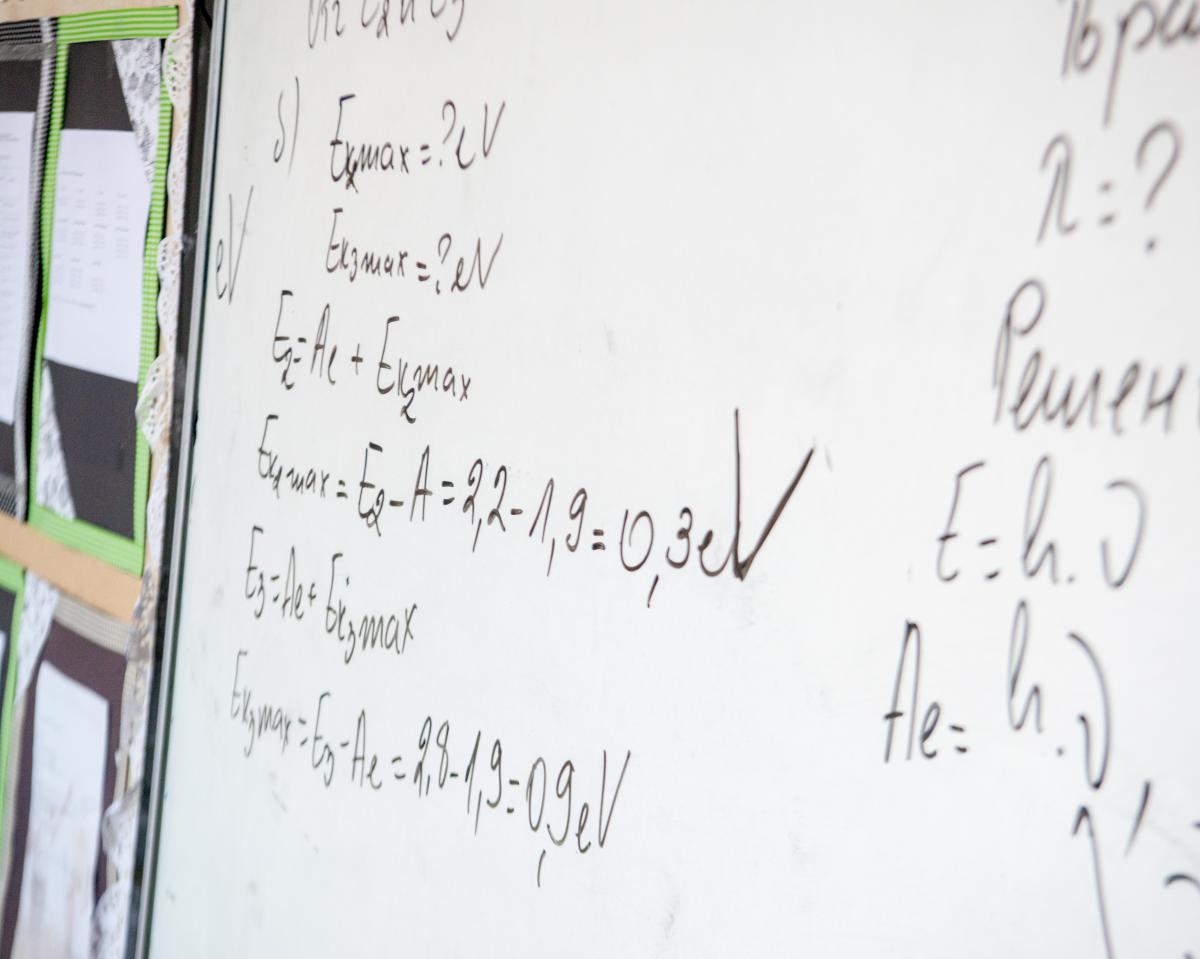 б) Eк2max = ? eV
eV
Eк3max = ? eV
E2 = Ae + Eк2max
Eк2max = E2 - A = 2,2 - 1,9 = 0,3 eV
E3 = Ae + Eк3max
Eк3max = E3 - Ae = 2,8 - 1,9 = 0,9 eV
λ = ?
Решен
E = h.υ
Ae = h.υ